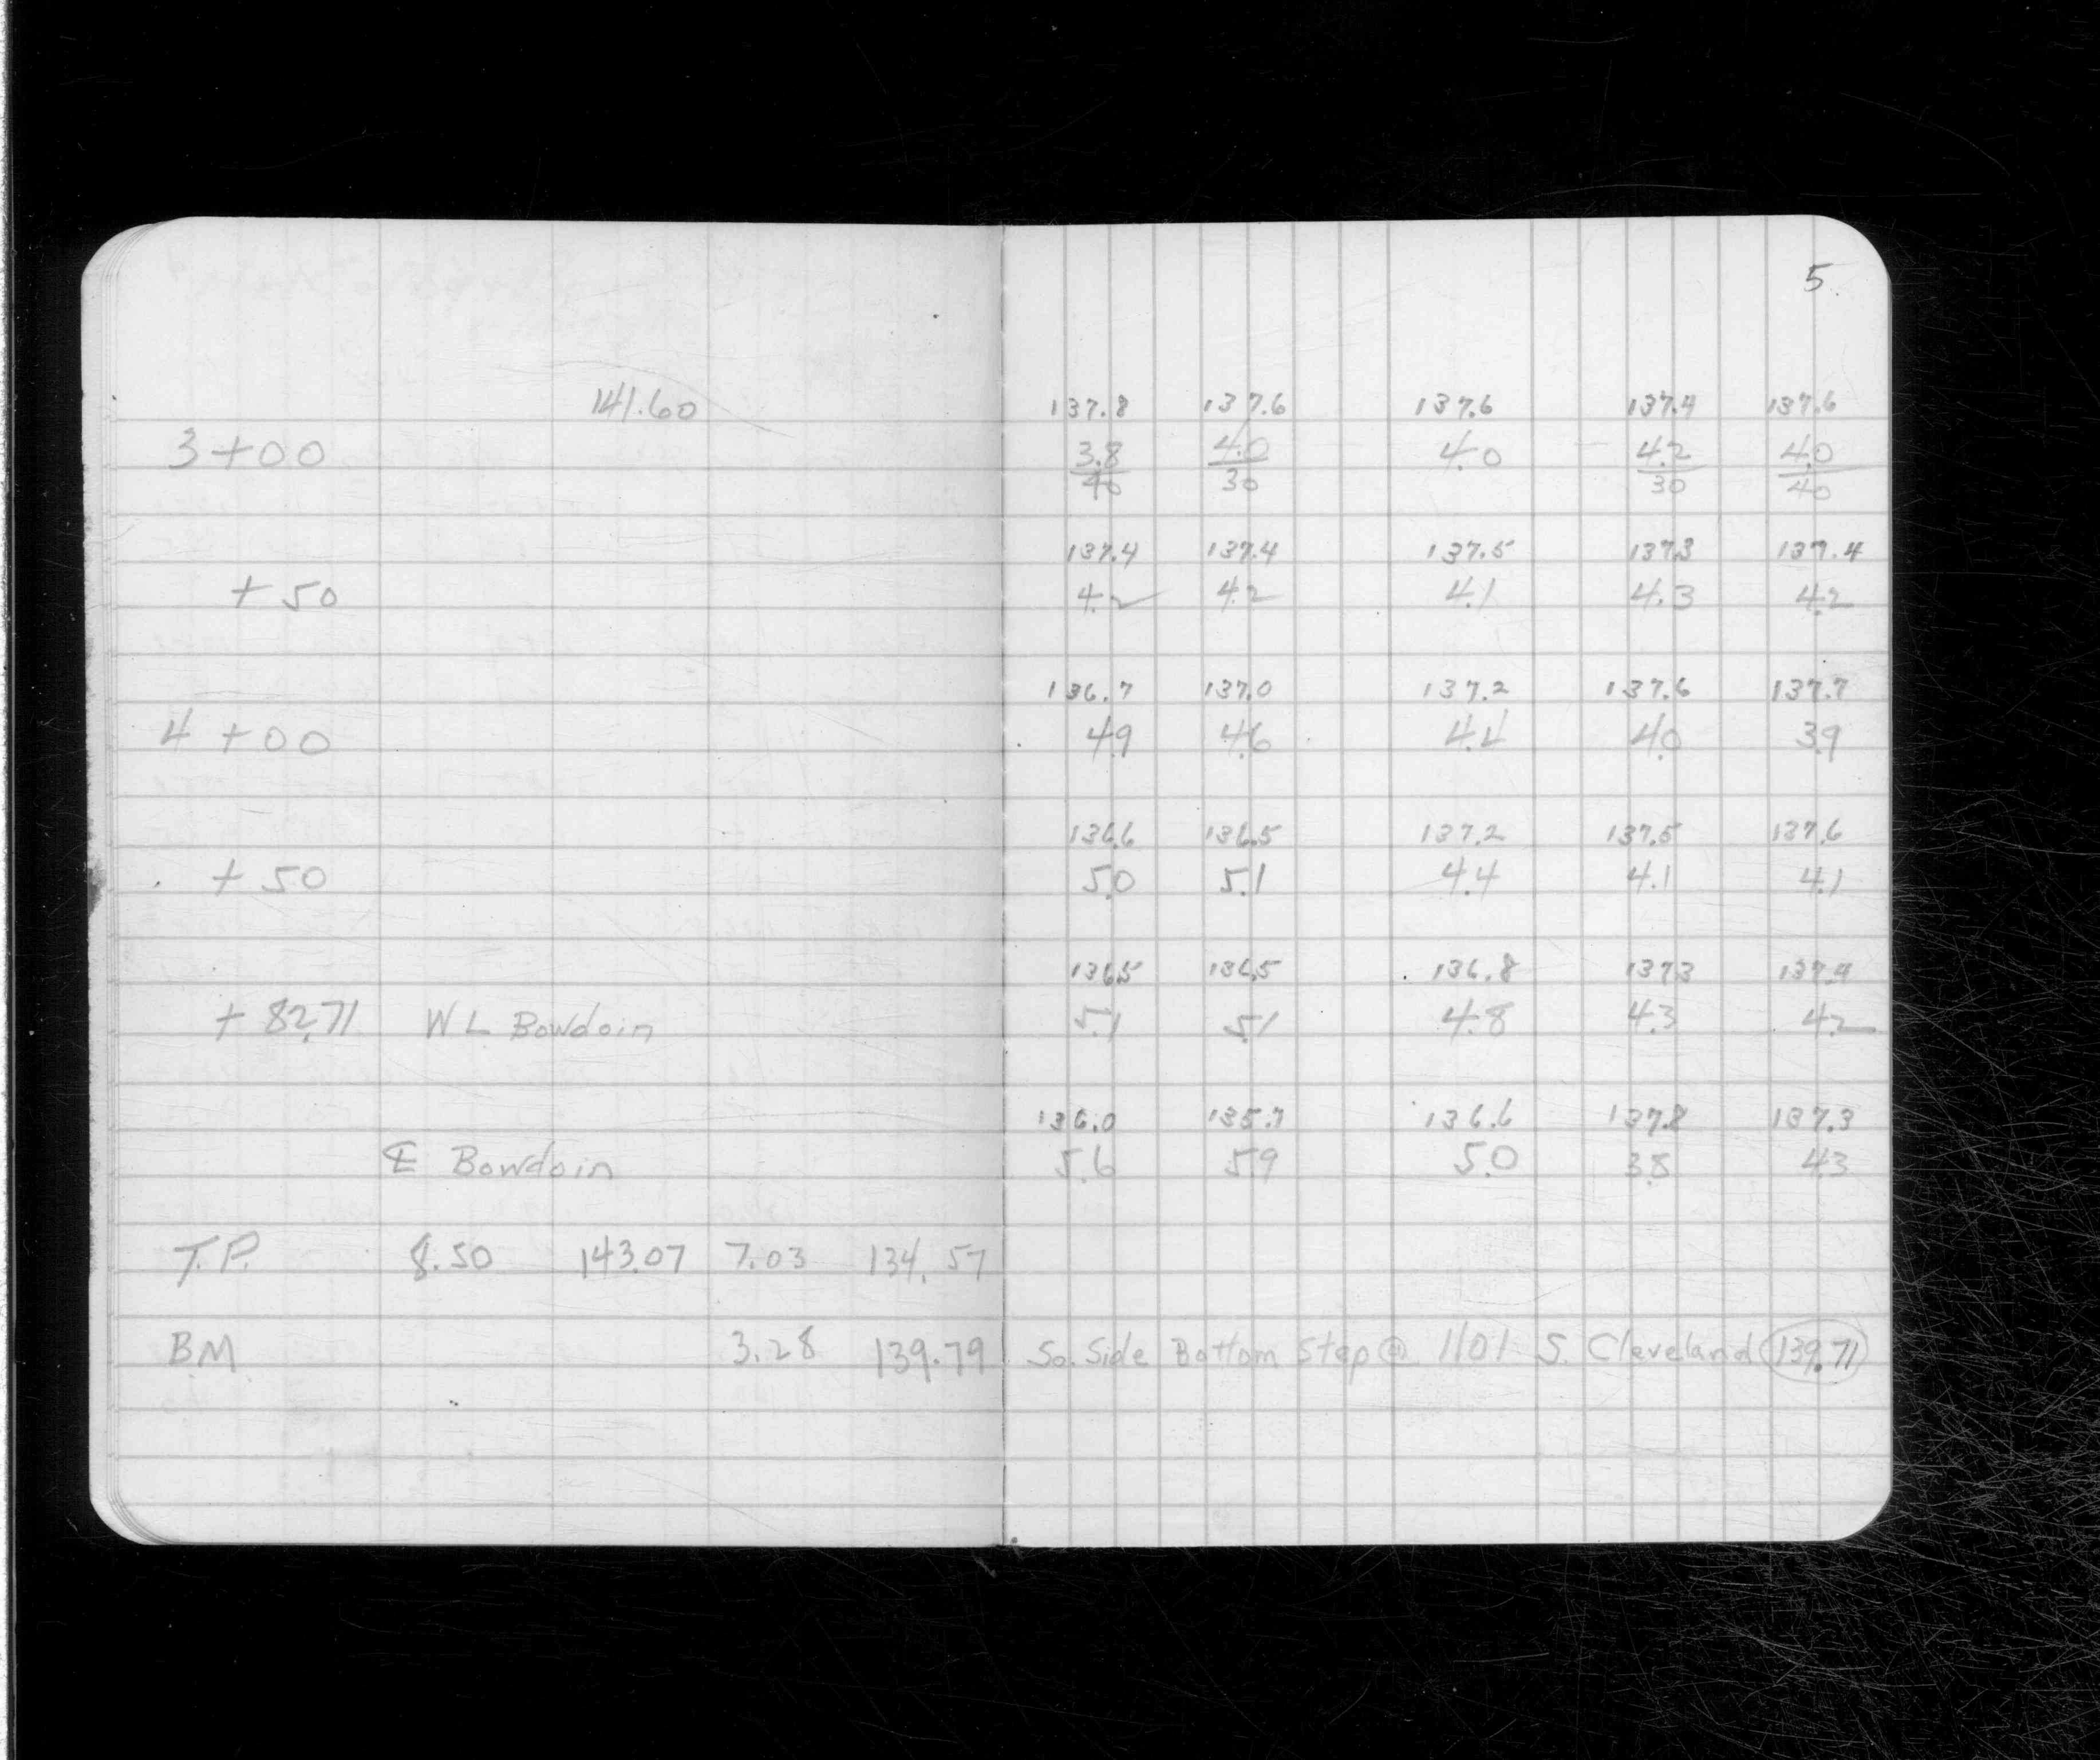 5
141.60 137.8 137.6 137.6 137.4 137.6
3+00 3.8/40 4.0/30 4.0 4.2/30 4.0/40
137.4 137.4 137.5 137.3 137.4
+50 4.2 4.2 4.1 4.3 4.2
136.7 137.0 137.2 137.6 137.7
4+00 4.9 4.6 4.4 4.0 3.9
136.6 136.5 137.2 137.5 137.6
+50 5.0 5.1 4.4 4.1 4.1
136.5 136.5 136.8 137.3 137.4
+82.71 W L Bowdoin 5.1 5.1 4.8 4.3 4.2
136.0 135.7 136.6 137.8 137.3
℄ Bowdoin 5.6 5.9 5.0 3.8 4.3
T.P. 8.50 143.07 7.03 134.57
BM 3.28 139.79 So. Side Bottom Step @ 1101 S. Cleveland 139.71